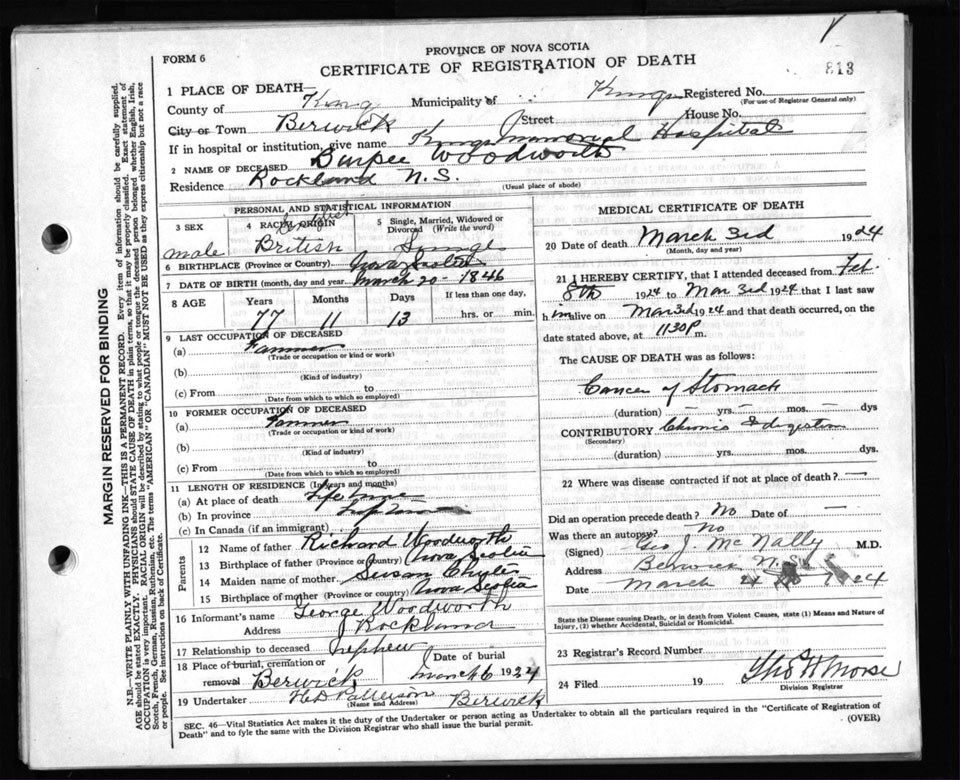 PROVINCE OF NOVA SCOTIA
FORM 6
CERTIFICATE OF REGISTRATION OF DEATH
813
1 PLACE OF DEATH—
County of Kings Municipality of Kings Registered No.
(For use of Registrar General only)
City or Town Berwick Street House No.
If in hospital or institution, give name Kings Memorial Hospital
2 NAME OF DECEASED Burpee Woodworth
Residence Rockland N.S.
(Usual place of abode)
PERSONAL AND STATISTICAL INFORMATION
3 SEX male
4 RACIAL ORIGIN British
5 Single, Married, Widowed or Divorced (Write the word) Single
6 BIRTHPLACE (Province or Country) Nova Scotia
7 DATE OF BIRTH (month, day and year) March 20 - 1846
8 AGE Years Months Days If less than one day,
77 11 13 hrs. or min.
9 LAST OCCUPATION OF DECEASED
(a) Farmer
(Trade or occupation or kind or work)
(b)
(Kind of industry)
(c) From to
(Date from which to which so employed)
10 FORMER OCCUPATION OF DECEASED
(a) Farmer
(Trade or occupation or kind of work)
(b)
(Kind of industry)
(c) From to
(Date from which to which so employed)
11 LENGTH OF RESIDENCE (In years and months)
(a) At place of death Life time
(b) In province Life time
(c) In Canada (if an immigrant)
Parents
12 Name of father Richard Woodworth
13 Birthplace of father (Province or Country) Nova Scotia
14 Maiden name of mother Susan
15 Birthplace of mother (Province or Country) Nova Scotia
16 Informant's name George Woodworth
Address Rockland
17 Relationship to deceased nephew
18 Place of burial, cremation or removal Berwick
Date of burial March 6 1924
19 Undertaker H D Patterson Berwick
(Name and Address)
MEDICAL CERTIFICATE OF DEATH
20 Date of death March 3rd 1924
(Month, day and year)
21 I HEREBY CERTIFY, that I attended deceased from Feb.
8th 1924 to Mar 3rd 1924 that I last saw
him alive on Mar 3rd 1924 and that death occurred, on the
date stated above, at 1130 P m.
The CAUSE OF DEATH was as follows:
Cancer of Stomach
(duration) — yrs. — mos. — dys
CONTRIBUTORY Chronic Indigestion
(Secondary)
(duration) yrs. mos. dys.
22 Where was disease contracted if not at place of death? —
Did an operation precede death? No Date of —
Was there an autopsy? No
(Signed) Geo J. McNally M.D.
Address Berwick N.S.
Date March 1924
State the Disease causing Death, or in death from Violent Causes, state (1) Means and Nature of
Injury, (2) whether Accidental, Suicidal or Homicidal.
23 Registrar's Record Number
24 Filed 19 Thos H Morse
Division Registrar
SEC. 46—Vital Statistics Act makes it the duty of the Undertaker or person acting as Undertaker to obtain all the particulars required in the "Certificate of Registration of
Death" and to fyle the same with the Division Registrar who shall issue the burial permit.
(OVER)
MARGIN RESERVED FOR BINDING
N.B.—WRITE PLAINLY WITH UNFADING INK—THIS IS A PERMANENT RECORD. Every item of information should be carefully supplied.
AGE should be stated EXACTLY. PHYSICIANS should STATE CAUSE OF DEATH in plain terms, so that it may be properly classified. Exact statement of
OCCUPATION is very important. RACIAL ORIGIN will be described by stating to what people or tongue the deceased person belonged whether English, Irish,
Scotch, French, German, Russian, Ruthenian, etc. The terms "AMERICAN" OR "CANADIAN" MUST NOT BE USED as they express citizenship but not a race
or people. See instructions on back of Certificate.